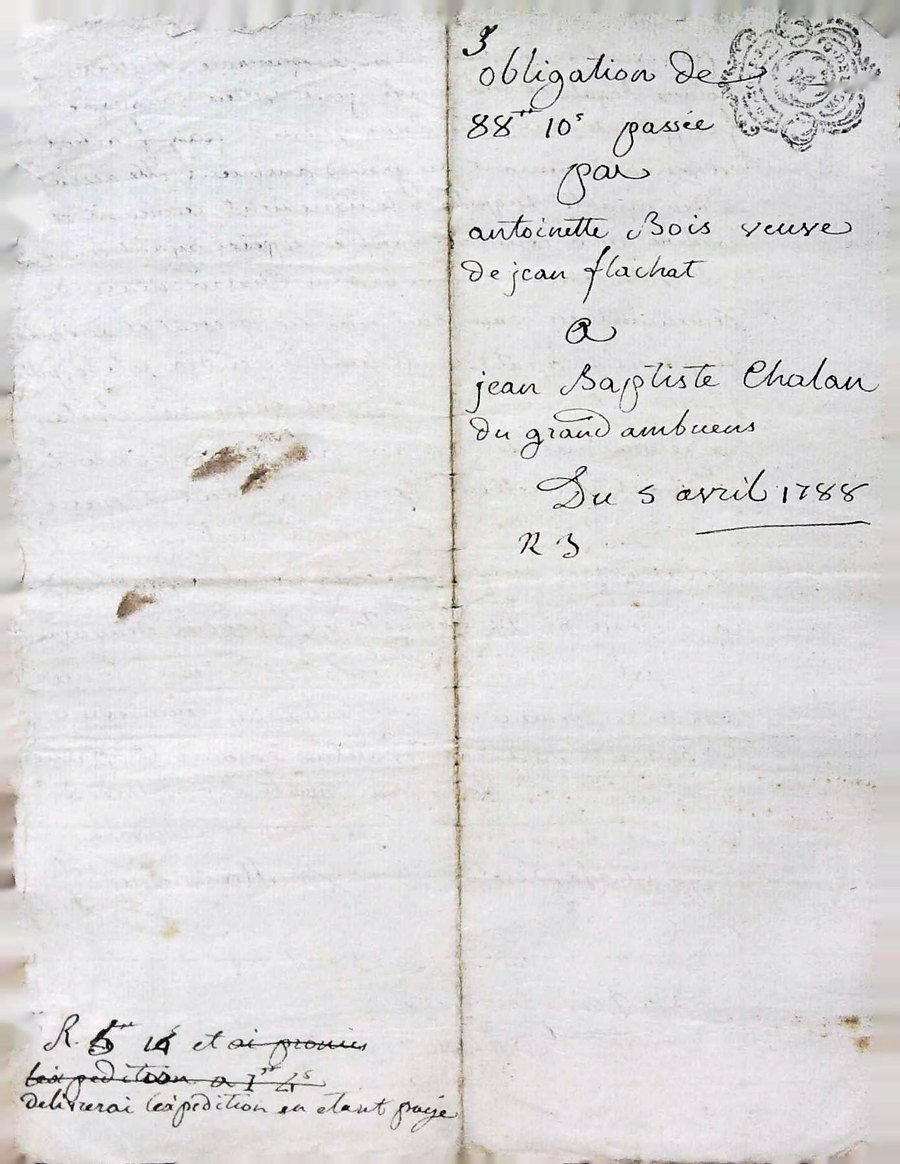 3
obligation de
88ᵗᵗ 10ˢ passée
par
antoinette Bois veuve
de jean flachat
a
jean Baptiste Chalan
du grand ambuens
Du 5 avril 1788
R 3
R. 5ᵗᵗ et ai promis
lexpedition a 1ᵗᵗ 4ˢ
delivrerai lexpedition en etant payé